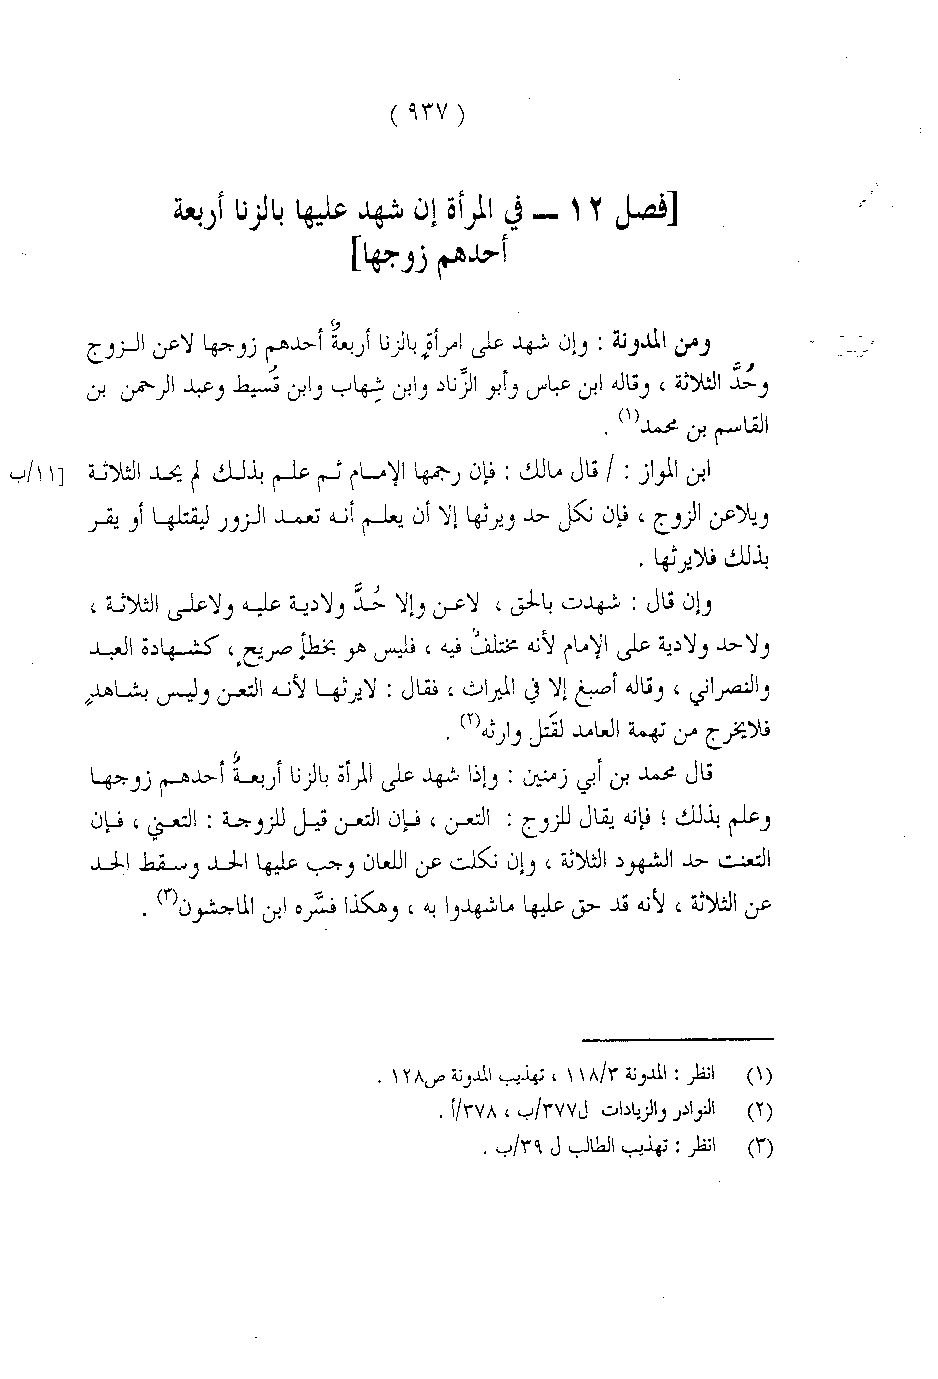 ( ٩٣٧ )
[فصل ١٢ ــ في المرأة إن شهد عليها بالزنا أربعة
أحدهم زوجها]
ومن المدونة : وإن شهد على امرأةٍ بالزنا أربعةٌ أحدهم زوجها لاعن الزوج
وحُدَّ الثلاثة ، وقاله ابن عباس وأبو الزَّناد وابن شِهاب وابن قُسيط وعبد الرحمن بن
القاسم بن محمد(١) .
ابن المواز : / قال مالك : فإن رجمها الإمام ثم علم بذلك لم يحد الثلاثة [١١/ب
ويلاعن الزوج ، فإن نكل حد ويرثها إلا أن يعلم أنه تعمد الزور ليقتلها أو يقر
بذلك فلايرثها .
وإن قال : شهدت بالحق ، لاعن وإلا حُدَّ ولادية عليه ولاعلى الثلاثة ،
ولاحد ولادية على الإمام لأنه مختلفٌ فيه ، فليس هو بخطأٍ صريحٍ ، كشهادة العبد
والنصراني ، وقاله أصبغ إلا في الميراث ، فقال : لايرثها لأنه التعن وليس بشاهدٍ
فلايخرج من تهمة العامد لقَتل وارثه(٢) .
قال محمد بن أبي زمنين : وإذا شهد على المرأة بالزنا أربعةٌ أحدهم زوجها
وعلم بذلك ؛ فإنه يقال للزوج : التعن ، فإن التعن قيل للزوجة : التعني ، فإن
التعنت حد الشهود الثلاثة ، وإن نكلت عن اللعان وجب عليها الحد وسقط الحد
عن الثلاثة ، لأنه قد حق عليها ماشهدوا به ، وهكذا فسَّره ابن الماجشون(٣) .
(١) انظر : المدونة ١١٨/٣ ، تهذيب المدونة ص١٢٨ .
(٢) النوادر والزيادات ل٣٧٧/ب ، ٣٧٨/أ .
(٣) انظر : تهذيب الطالب ل ٣٩/ب .